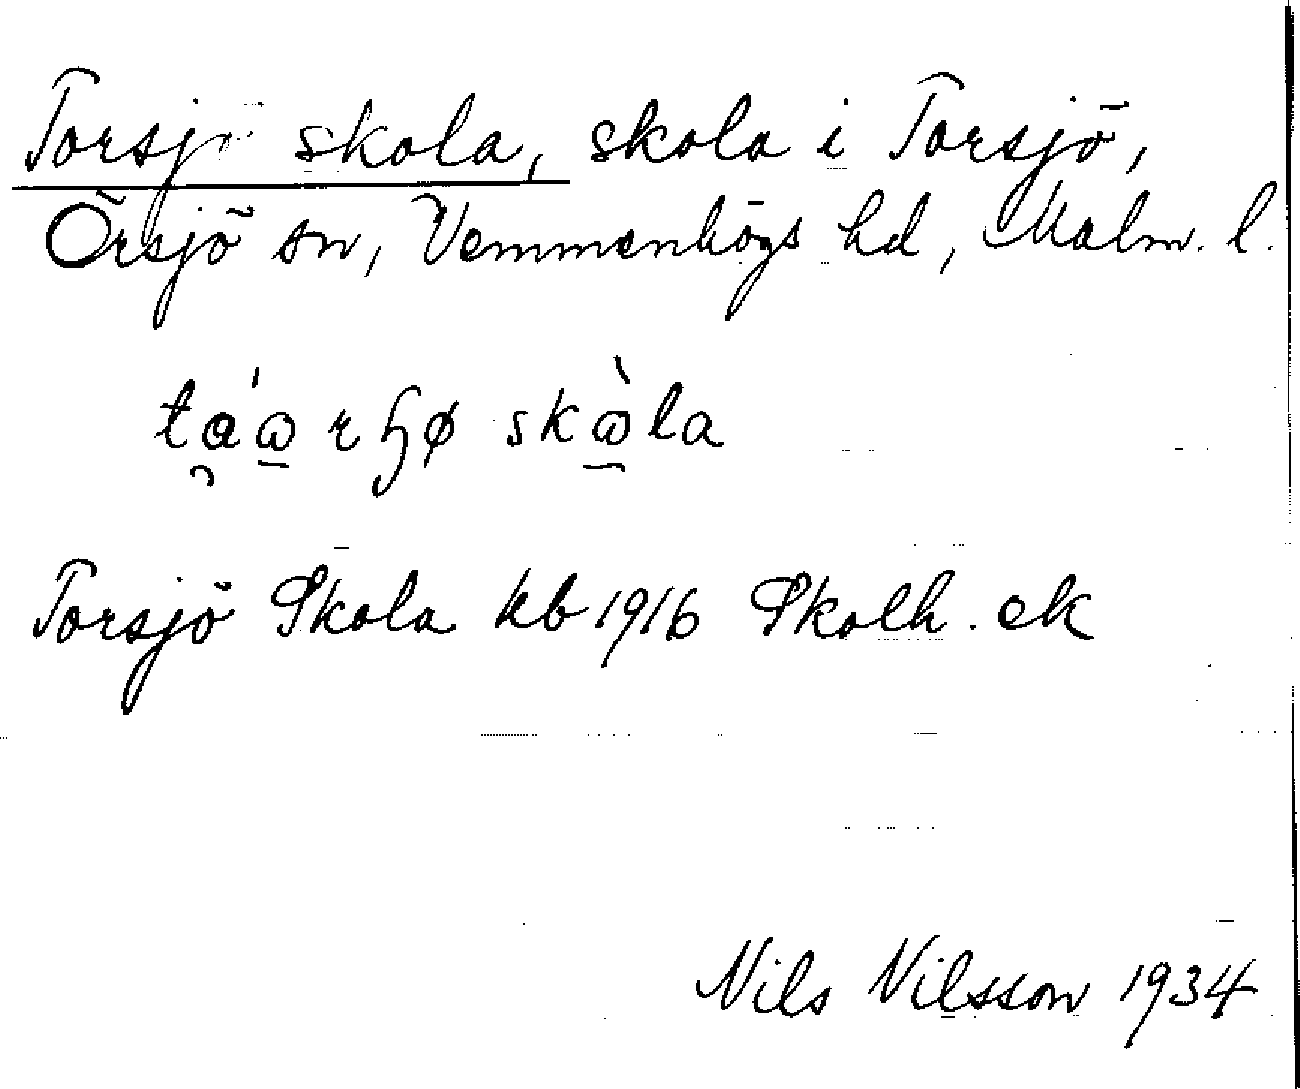 Torsjö skola, skola i Torsjö,
Örsjö sn, Vemmenhögs hd, Malm. l.
skola
Torsjö Skola kb 1916 Skolh. ek
Nils Nilsson 1934